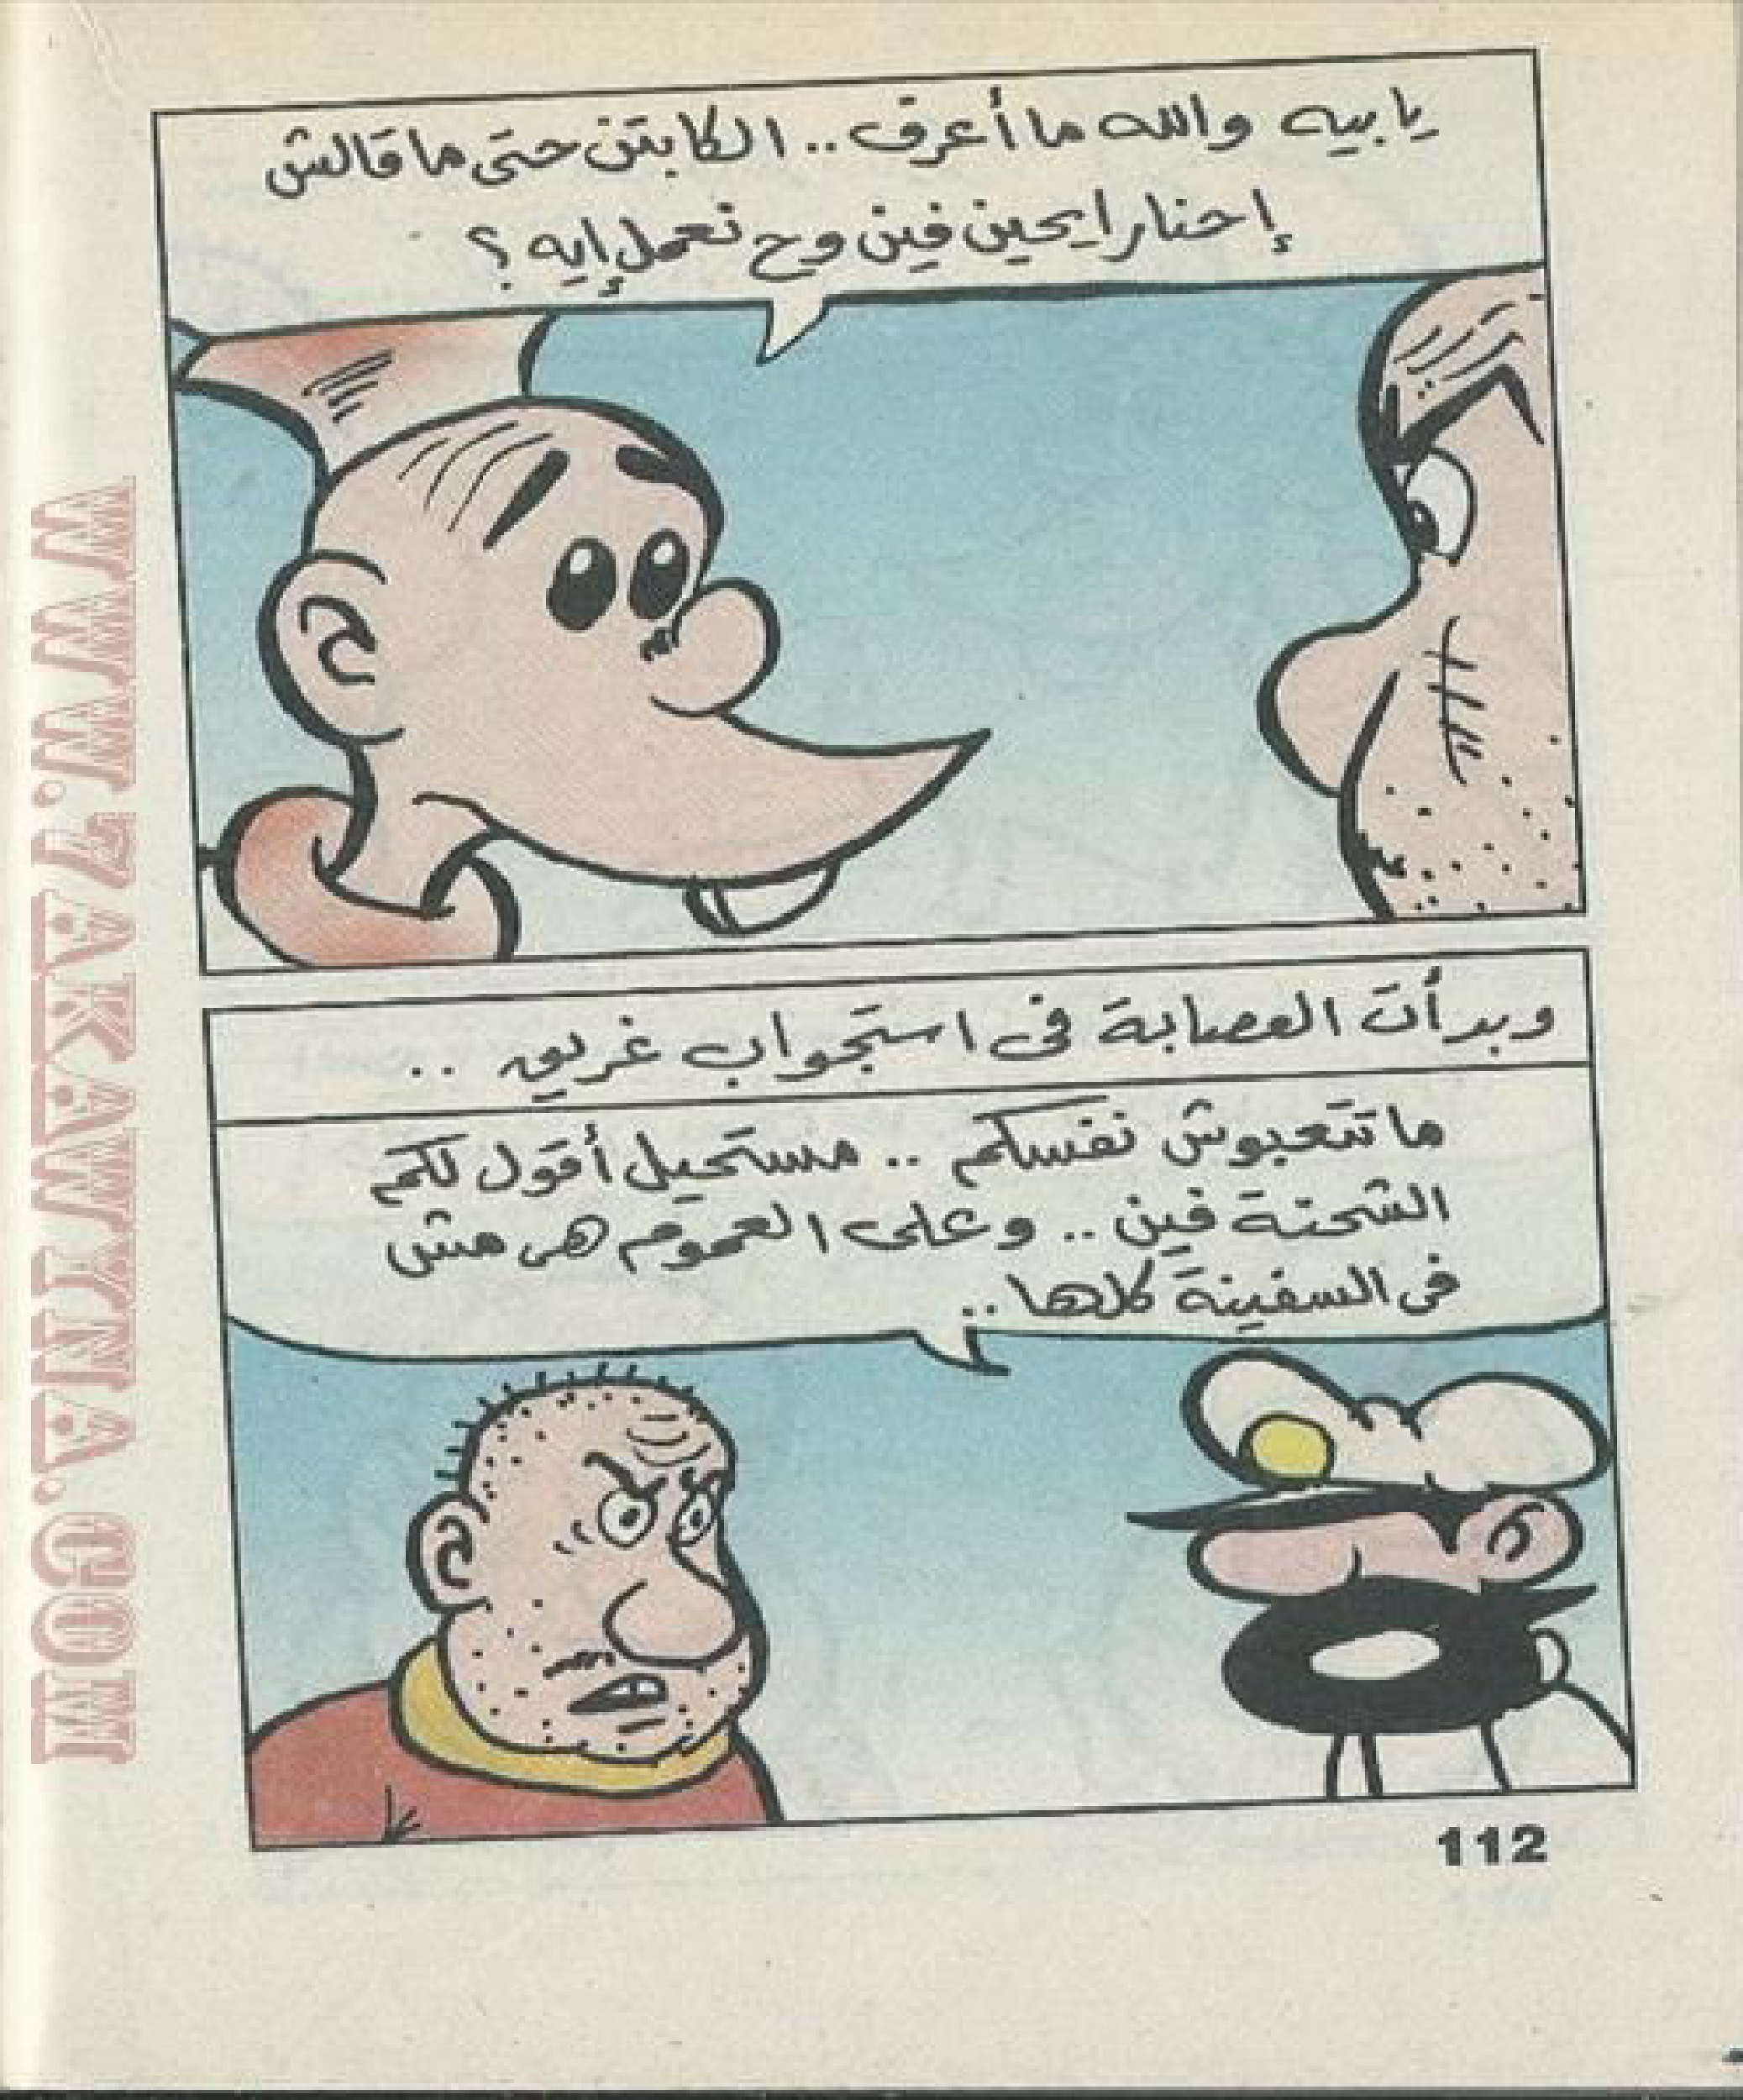 يا بيه والله ما أعرف .. الكابتن حتى ما قالش
إحنا رايحين فين وح نعمل إيه ؟
وبدأت العصابة فى استجواب غريب ..
ما تتعبوش نفسكم .. مستحيل أقول لكم
الشحنة فين .. وعلى العموم هى مش
فى السفينة كلها ..
112
WWW.ZAKAWATNA.COM